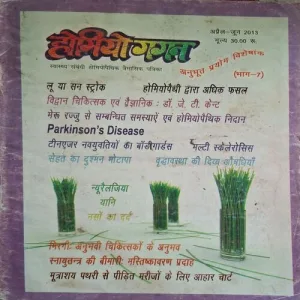 अप्रैल - जून 2013
मूल्य 30.00 रू.
होमियो गगन
स्वास्थ्य संबंधी होमियोपैथिक वैज्ञानिक पत्रिका
अनुभूत प्रयोग विशेषांक
(भाग-7)
लू या सन स्ट्रोक
होमियोपैथी द्वारा अधिक फसल
विद्वान चिकित्सक एवं वैज्ञानिक : डॉ. जे. टी. केन्ट
मेरू रज्जु से सम्बन्धित समस्याएं एवं होमियोपैथिक निदान
Parkinson's Disease
टीनएजर नवयुवतियों का बॉडीगार्डस
मल्टी स्केलेरोसिस
सेहत का दुश्मन मोटापा
वृद्धावस्था की दिव्य औषधियाँ
न्यूरेलजिया
यानि
नसों का दर्द
मिरगी: अनुभवी चिकित्सकों के अनुभव
स्नायुतन्त्र की बीमारी: मस्तिष्कावरण प्रदाह
मूत्राशय पथरी से पीड़ित मरीजों के लिए आहार चार्ट